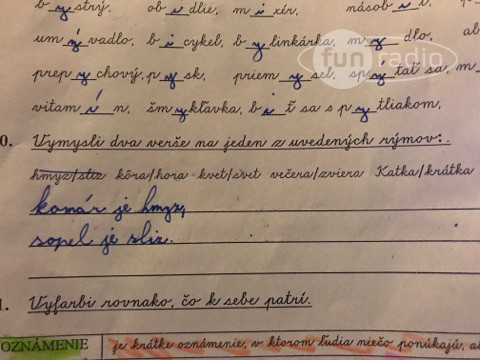 bystrý, obidlie, mixér, násobi
umývadlo, bicykel, bylinkárka, mydlo, ab
prepychový, pysk, priemysel, spýtať sa, m
vitamín, šmykľavka, biť sa s pytliakom,
fun radio
0. Vymysli dva verše na jeden z uvedených rýmov:.
hmyz/sliz kôra/hora kvet/svet večera/zviera Katka/krátka
komár je hmyz,
sopel je sliz.
1. Vyfarbi rovnako, čo k sebe patrí.
OZNÁMENIE je krátke oznámenie, v ktorom ľudia niečo ponúkajú, al